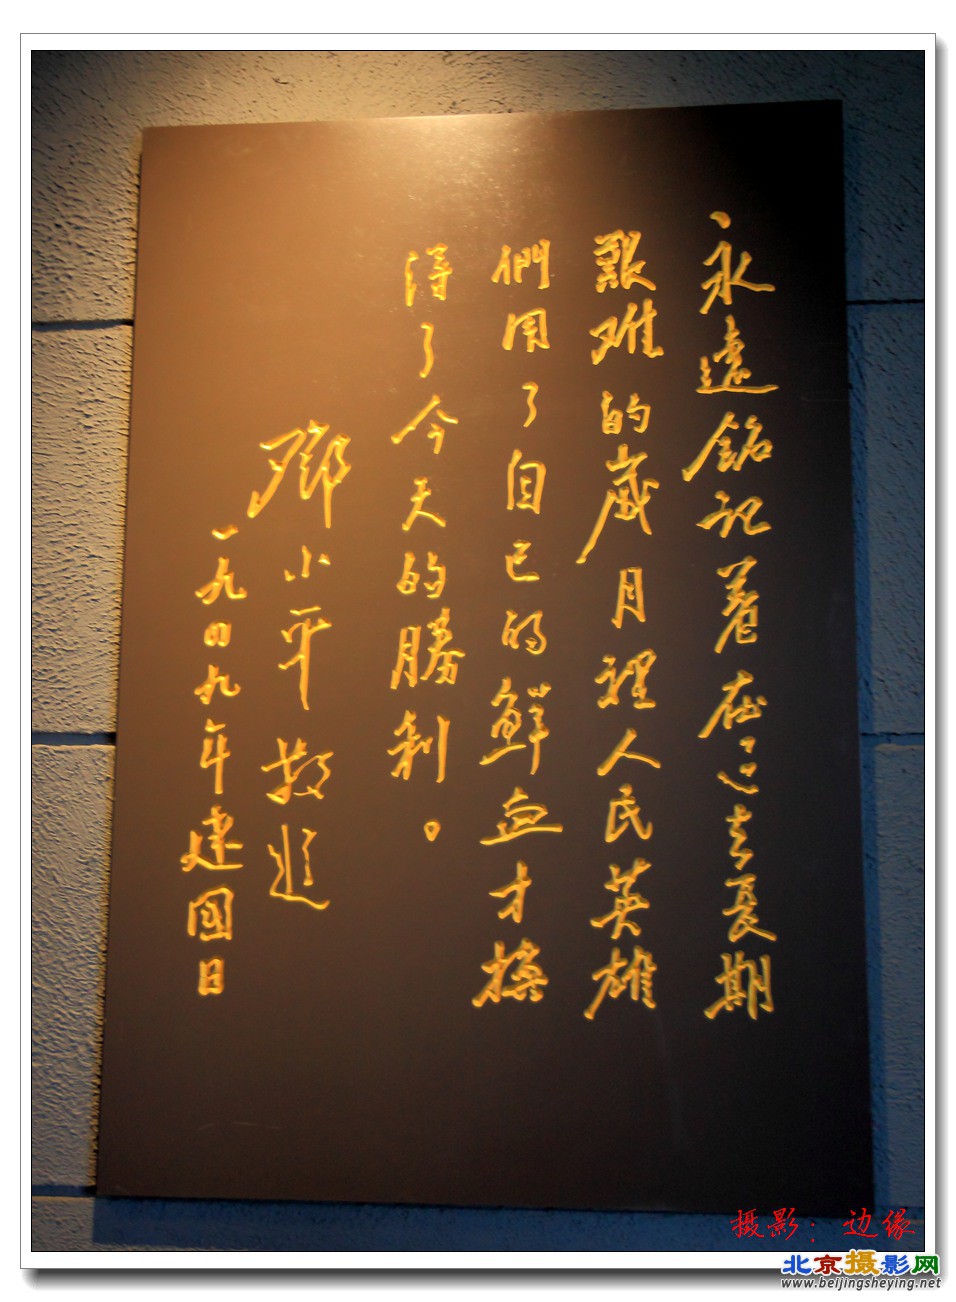 永遠銘記着在过去長期
艱难的歲月裡人民英雄
們用了自己的鮮血才換
得了今天的勝利。
鄧小平敬題
一九四九年建國日
摄影：边缘
北京摄影网
www.beijingsheying.net